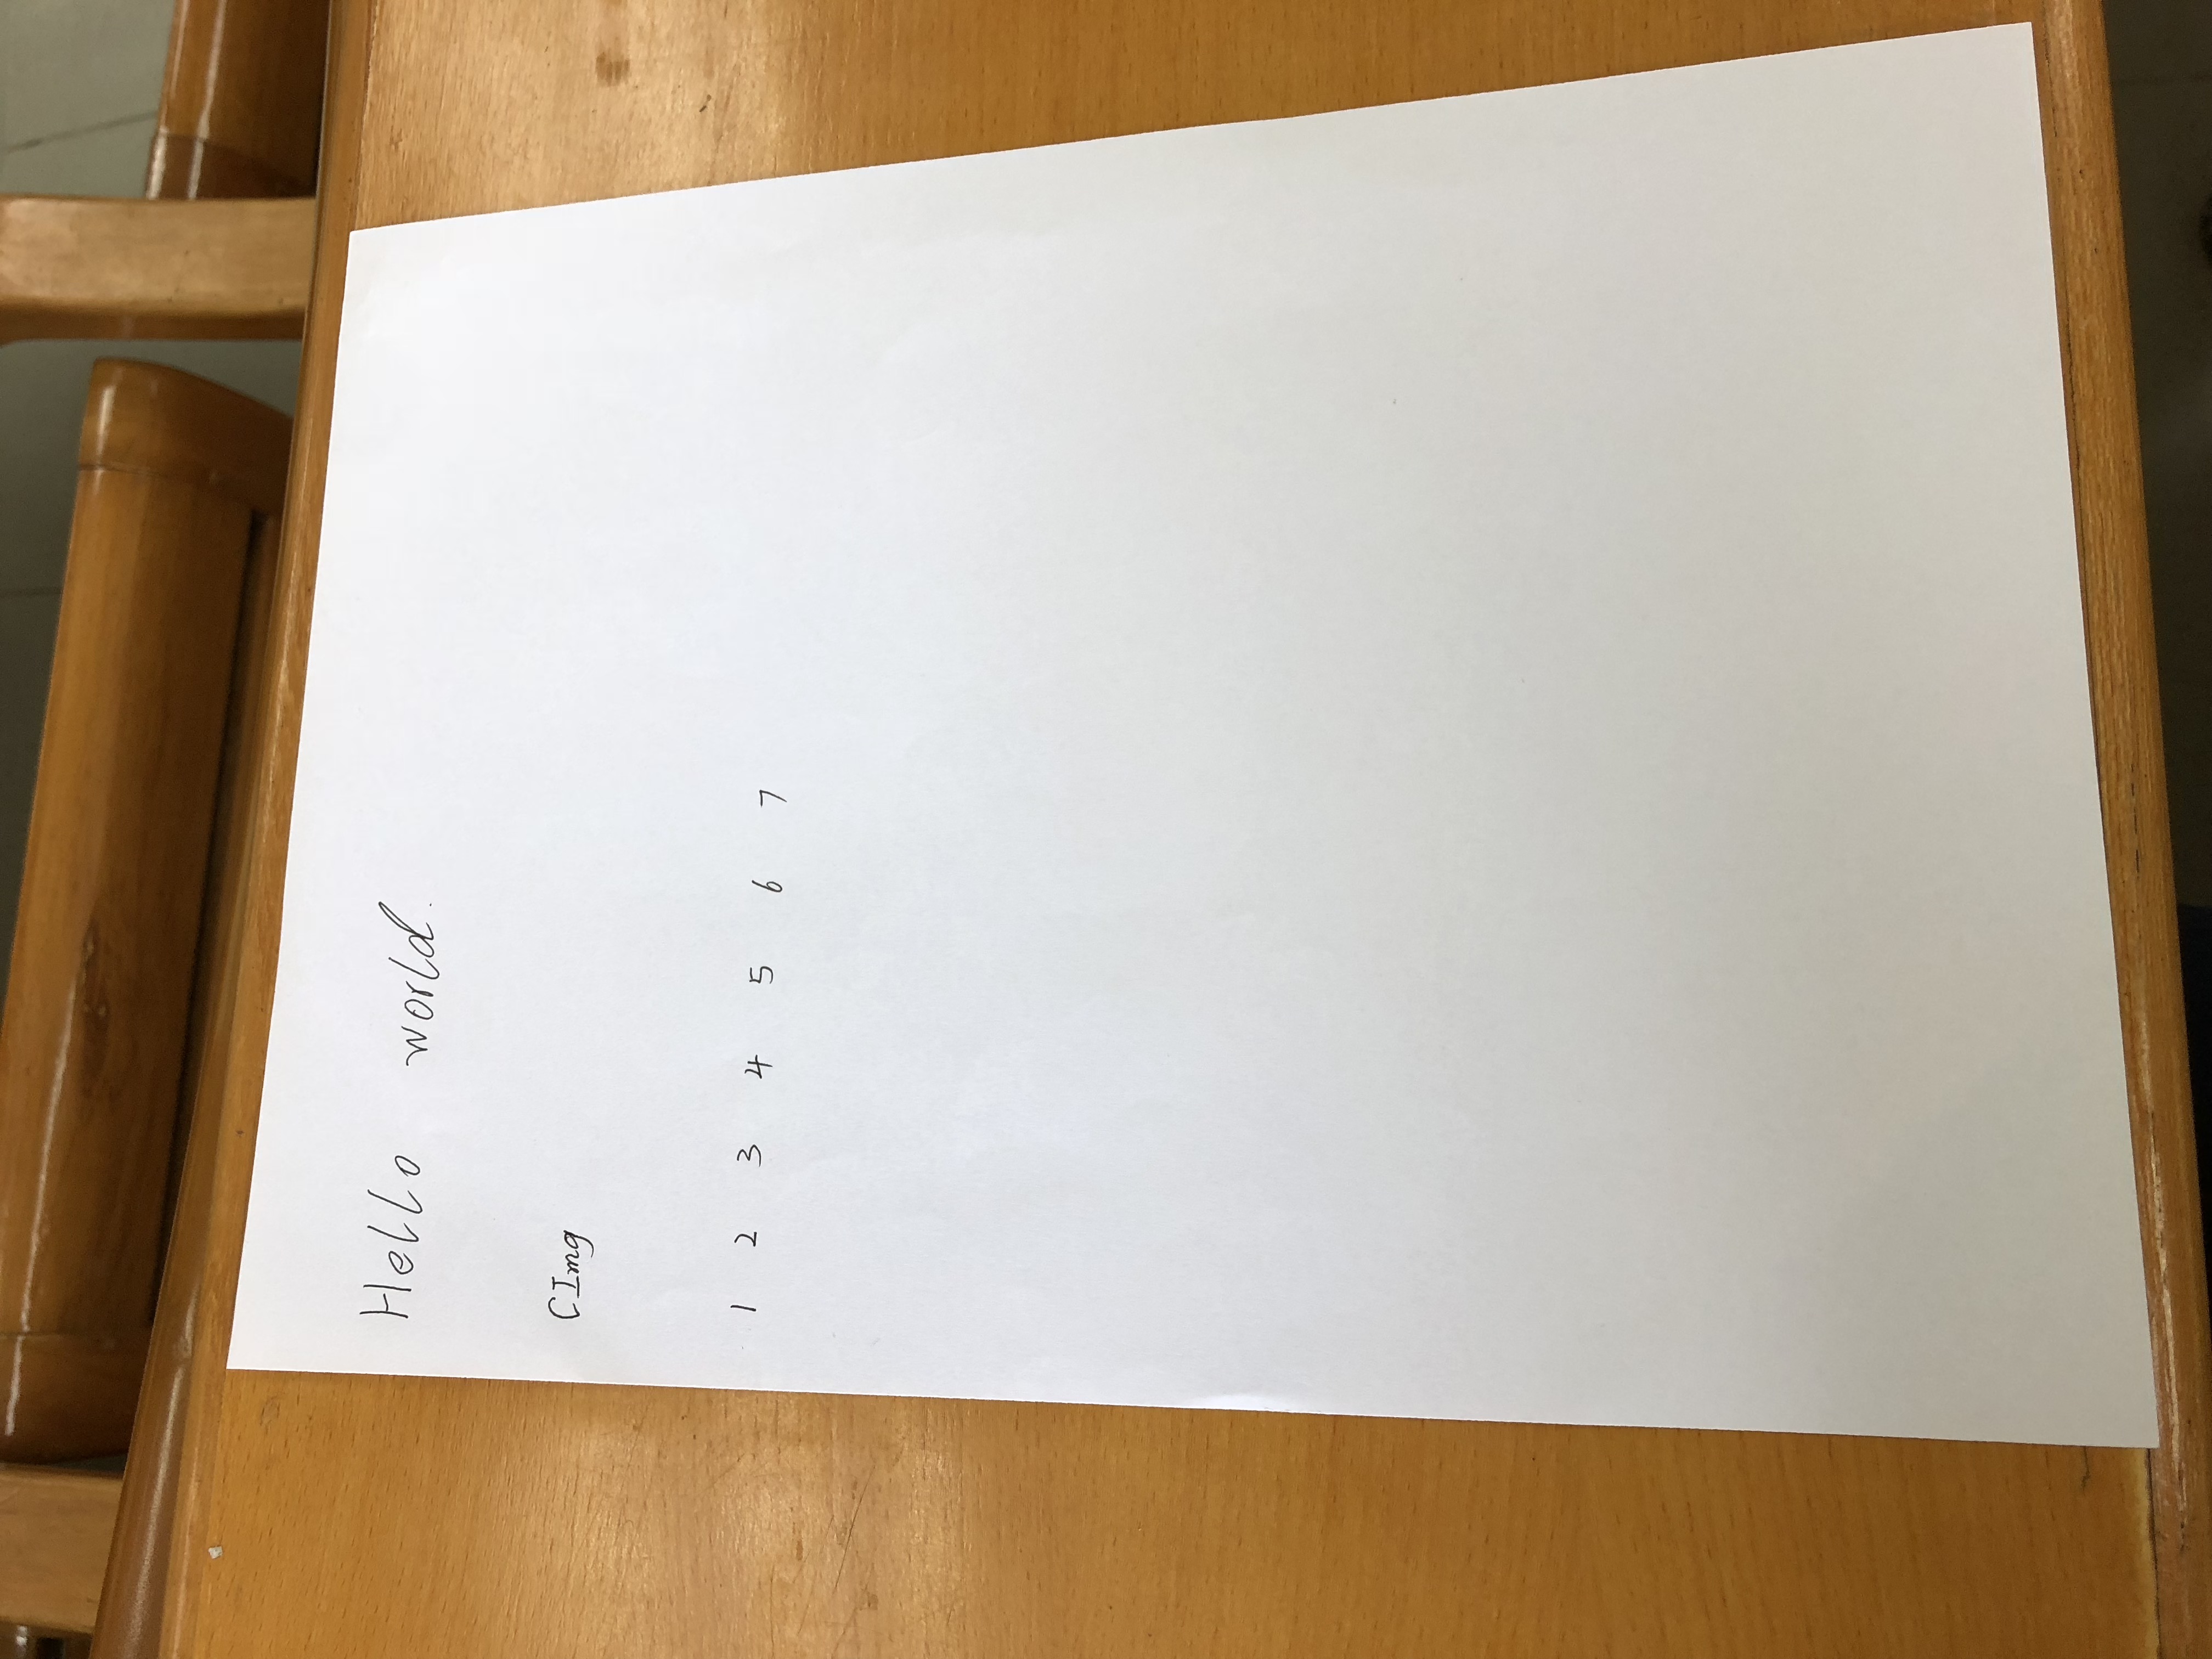 Hello world.
CImg
1 2 3 4 5 6 7